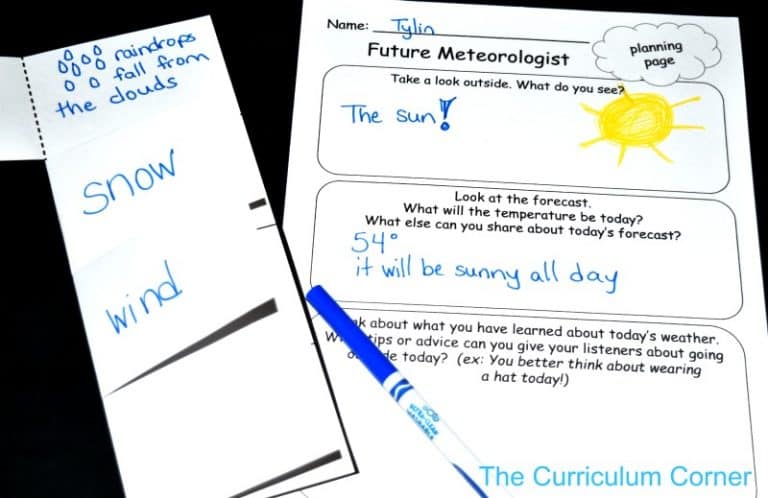 raindrops
fall from
the clouds
snow
wind
Name: Tylin
Future Meteorologist
planning
page
Take a look outside. What do you see?
The sun!
Look at the forecast.
What will the temperature be today?
What else can you share about today's forecast?
54°
it will be sunny all day
about what you have learned about today's weather.
tips or advice can you give your listeners about going
today? (ex: You better think about wearing
a hat today!)
ULTRA-CLEAN
WASHABLE
The Curriculum Corner